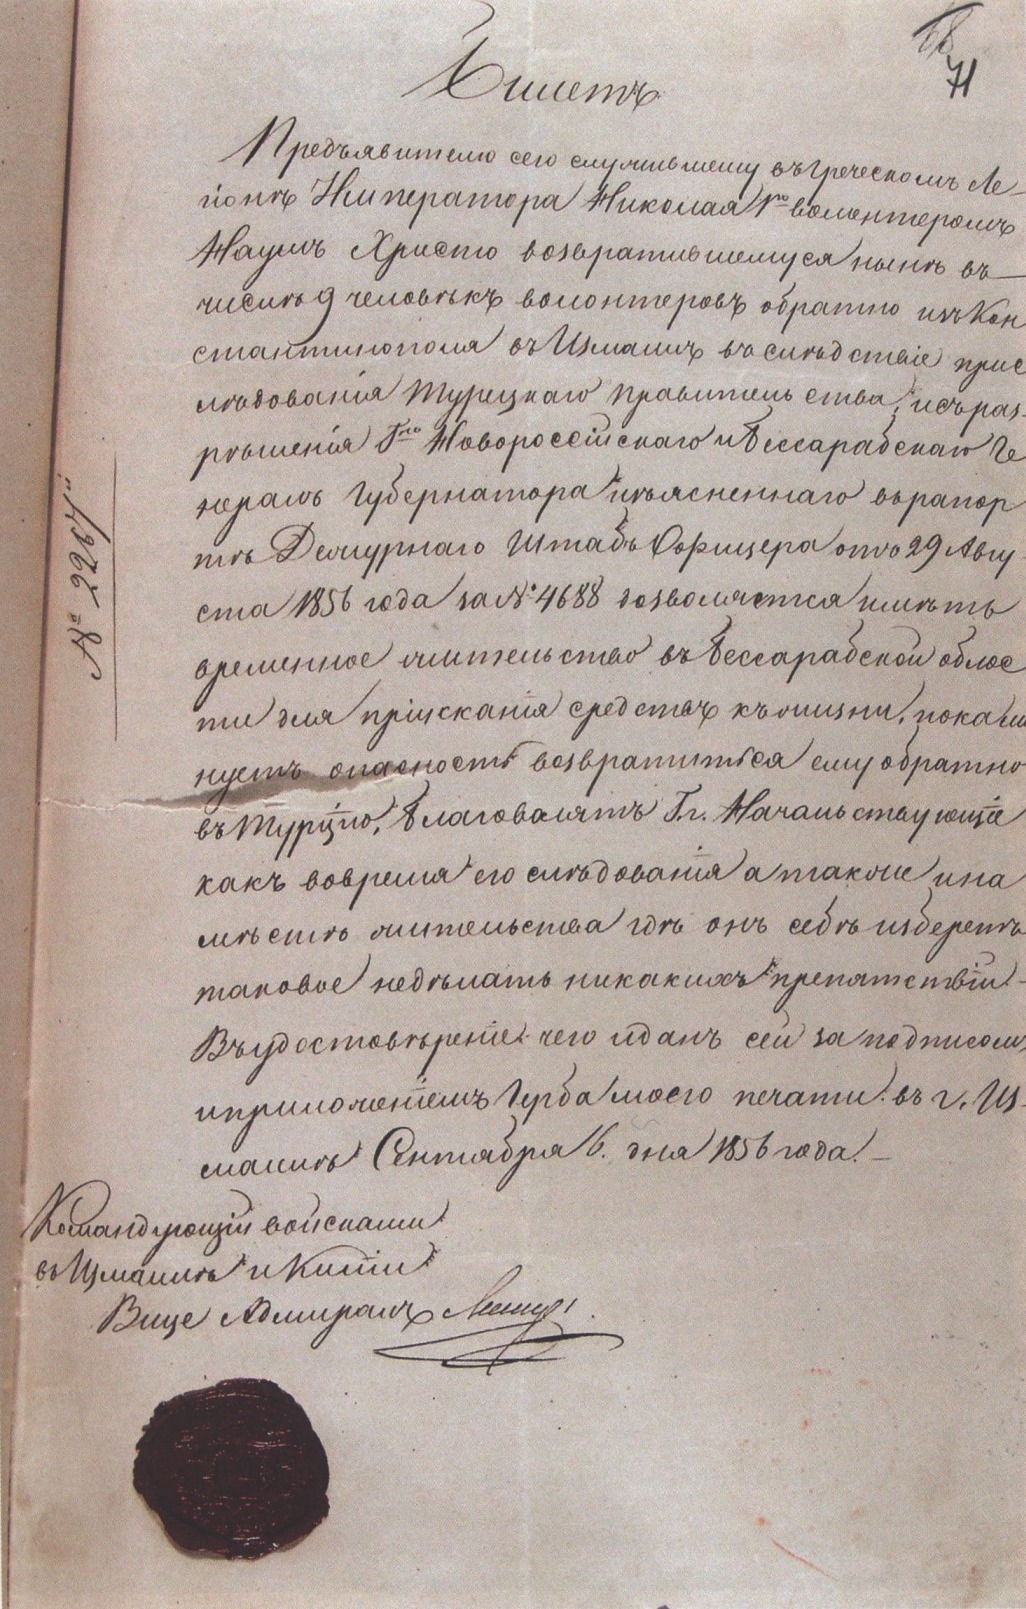 71
Билетъ
Предъявителю сего служившему въ Греческомъ Ле-
гіонѣ Императора Николая 1го волонтеромъ
Наумъ Христо возвратившемуся нынѣ въ
числѣ 9 человѣкъ волонтеровъ обратно изъ Кон
стантинополя въ Измаилъ въ слѣдствіе прис
лѣдованія Турецкаго Правительства, и съ раз-
рѣшенія Гна Новороссійскаго и Бессарабскаго Ге
нералъ Губернатора изъясненнаго въ рапор
тѣ Дежурнаго Штабъ Офицера отъ 29 Авгу
ста 1856 года за № 4688 дозволяется имѣть
временное жительство въ Бессарабской облас
ти для пріисканія средствъ къ жизни, пока ми
нуетъ опасность возвратиться ему обратно
въ Турцію, благоволятъ Г.г. Начальствующіе
какъ вовремя его слѣдованія а также и на
мѣстѣ жительства гдѣ онъ себѣ изберетъ
таковое недѣлать никакихъ препятствій.-
Въ удостовѣреніе чего и данъ сей за подписом,
и приложеніемъ Герба моего печати. въ г. Из-
маилѣ Сентября 6. дня 1856 года.-
Командующій войсками
въ Измаилѣ и Киліи
Вице Адмиралъ